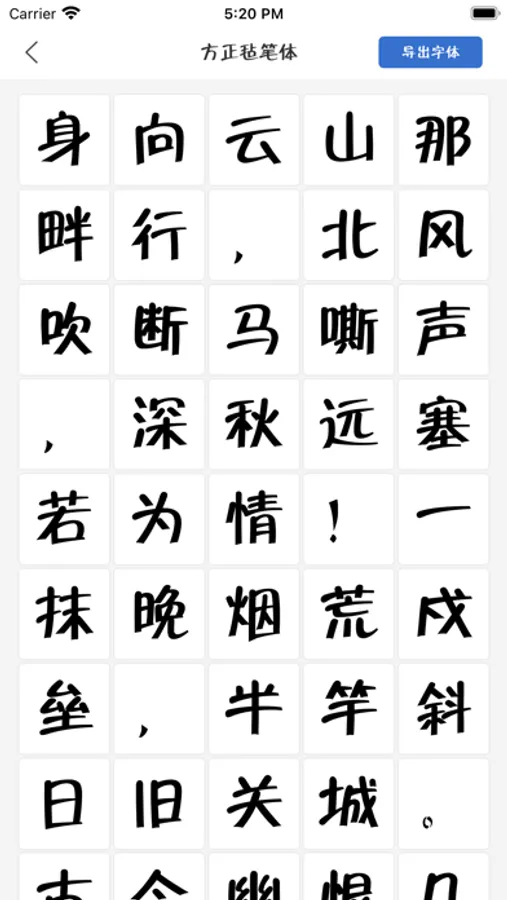 Carrier 5:20 PM
方正毡笔体 导出字体
身向云山那
畔行，北风
吹断马嘶声
，深秋远塞
若为情！一
抹晚烟荒戍
垒，半竿斜
日旧关城。
古今幽恨几